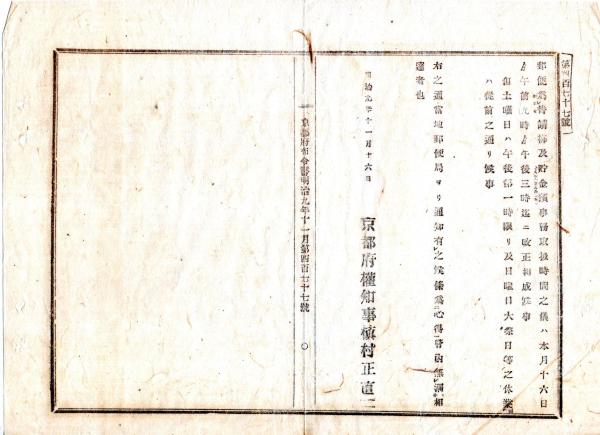 第四百七十七號
郵便爲替請拂及貯金預事務取扱時間之儀ハ本月十六日
ゟ午前九時ゟ午後三時迄ニ改正相成候事
但土曜日ハ午後第一時限リ及日曜日大祭日等之休業
ハ從前之通リ候事
右之通當地郵便局ヨリ通知有之候條爲心得管内無漏相
達者也
明治九年十一月十六日
京都府權知事槇村正直
京都府布令書明治九年十一月第四百七十七號